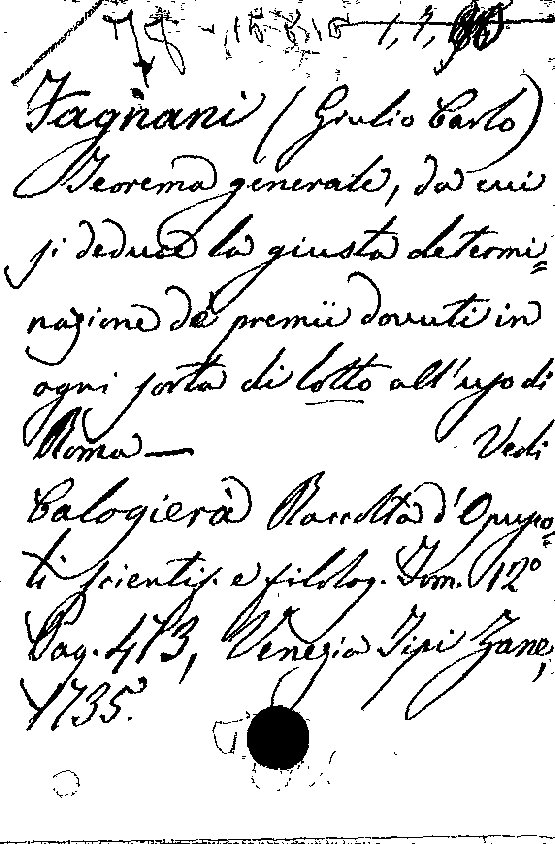 Fagnani (Giulio Carlo)
Teorema generale, da cui
si deduce la giusta determi=
nazione de' premii dovuti in
ogni sorta di lotto all'uso di
Roma — Vedi
Calogierà Raccolta d'Opuso=
li scientif. e filolog. Tom. 12º
Pag. 473, Venezia Tipi Zane,
1735.